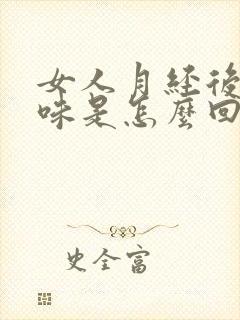 女人月经後
味是怎麼回
史全富